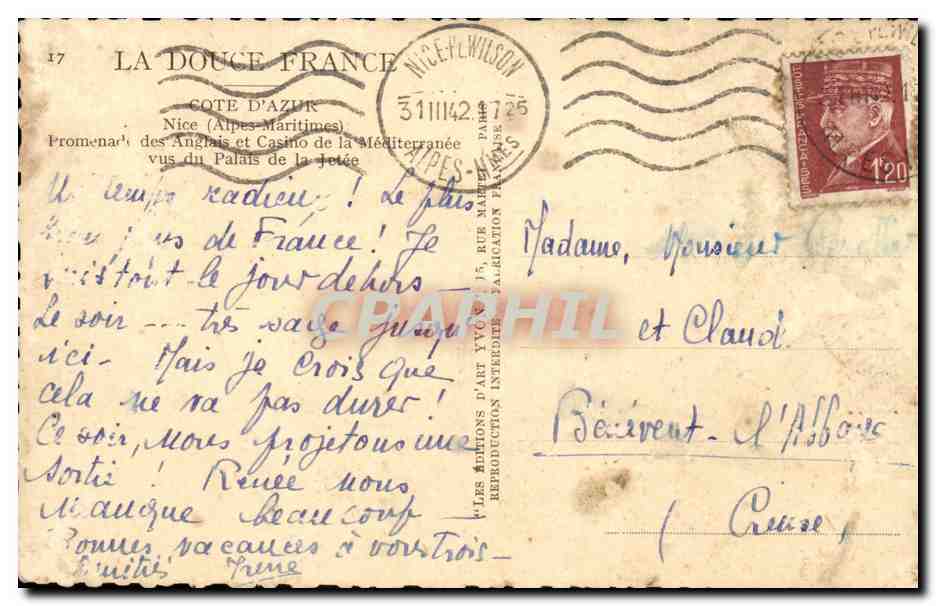 17 LA DOUCE FRANCE
COTE D'AZUR
Nice (Alpes-Maritimes)
Promenade des Anglais et Casino de la Méditerranée
vus du Palais de la Jetée
NICE-Pl. WILSON
31 III 42 1725
ALPES-MMES
POSTES FRANÇAISES
1F20
Un temps radieux ! Le plus
beau pays de France ! Je
suis tout le jour dehors —
Le soir --- très sage jusqu'
ici - Mais je crois que
cela ne va pas durer !
Ce soir, nous projetons une
sortie ! Renée nous
manque beaucoup —
Bonnes vacances à vous trois -
Amitiés Irene
"LES ÉDITIONS D'ART YVON", 15, RUE MARTEL, PARIS
REPRODUCTION INTERDITE FABRICATION FRANÇAISE
CPAPHIL
Madame, Monsieur
et Claud
Bénévent-l'Abbaye
(Creuse)